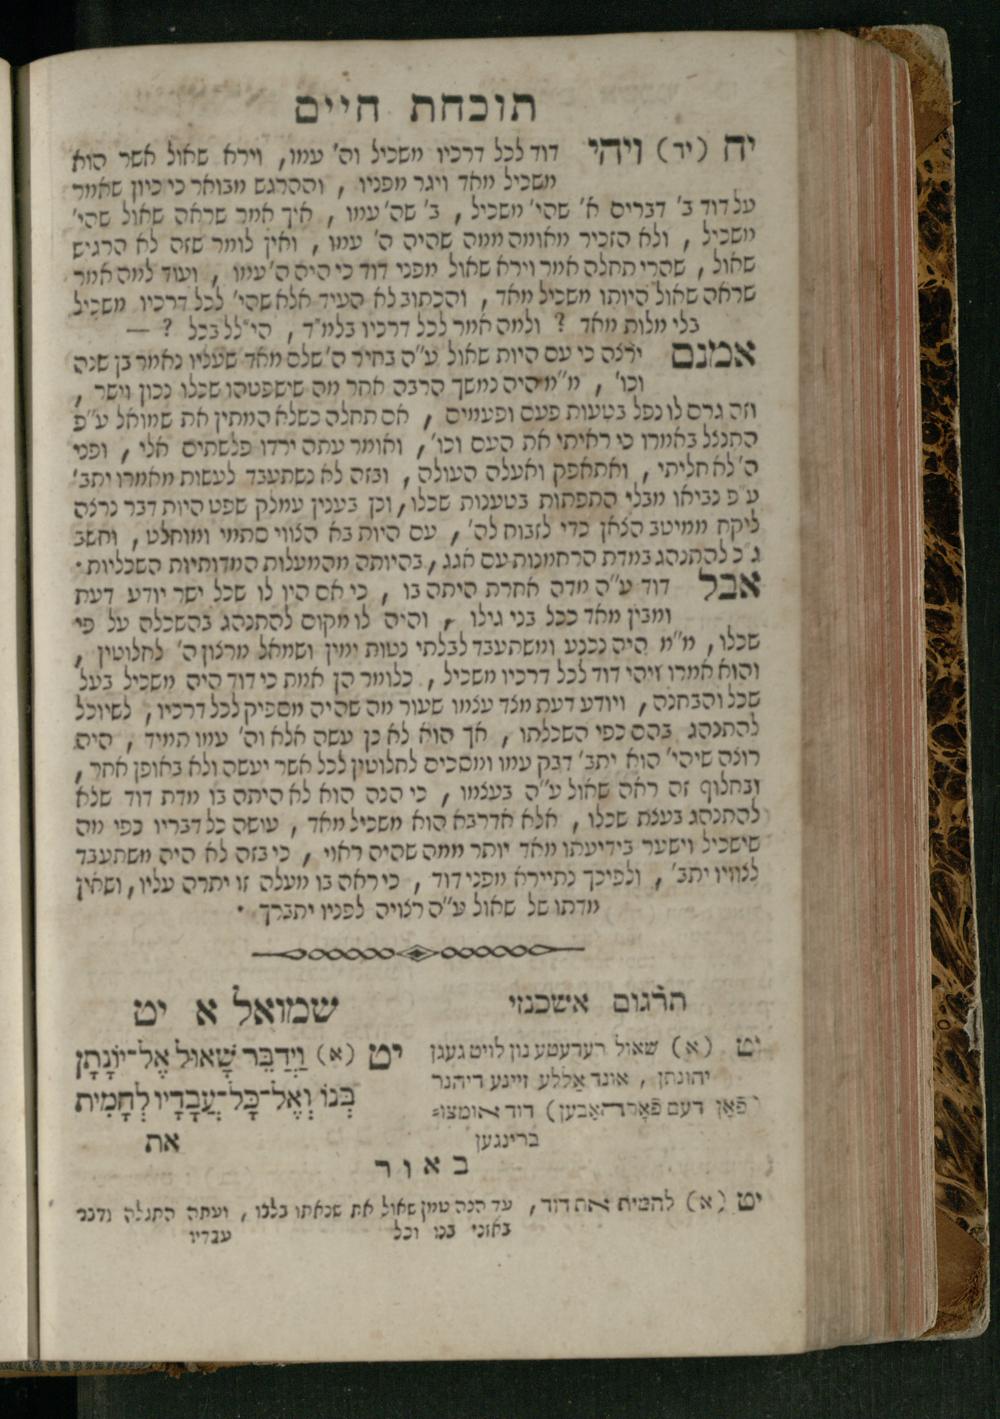 תוכחת חיים
יח (יד) ויהי דוד לכל דרכיו משכיל וה' עמו, וירא שאול אשר הוא
משכיל מאד ויגר מפניו, וההרגש מבואר כי כיון שאמר
על דוד ב' דברים א' שהי' משכיל, ב' שה' עמו, איך אמר שראה שאול שהי'
משכיל, ולא הזכיר מאומה ממה שהיה ה' עמו, ואין לומר שזה לא הרגיש
שאול, שהרי תחלה אמר וירא שאול מפני דוד כי היה ה' עמו, ועוד למה אמר
שראה שאול היותו משכיל מאד, והכתוב לא העיד אלא שהי' לכל דרכיו משכיל
בלי מלות מאד? ולמה אמר לכל דרכיו בלמ"ד, הי"לל בכל? —
אמנם ירצה כי עם היות שאול ע"ה בחיר ה' שלם מאד שעליו נאמר בן שנה
וכו', מ"מ היה נמשך הרבה אחר מה שישפטהו שכלו נכון וישר,
וזה גרם לו נפל בטעות פעם ופעמים, אם תחלה כשלא המתין את שמואל ע"פ
התנצל באמרו כי ראיתי את העם וכו', ואומר עתה ירדו פלשתים אלי, ופני
ה' לא חליתי, ואתאפק ואעלה העולה, ובזה לא נשתעבד לעשות מאמרו יתב'
ע"פ נביאו מבלי התפתות בטענות שכלו, וכן בענין עמלק שפט היות דבר נרצה
ליקח ממיטב הצאן כדי לזבוח לה', עם היות בא הצווי סתמי ומוחלט, וחשב
ג"כ להתנהג במדת הרחמנות עם אגג, בהיותה מהמעלות המדותיות השכליות.
אבל דוד ע"ה מדה אחרת היתה בו, כי אם הין לו שכל ישר יודע דעת
ומבין מאד ככל בני גילו, והיה לו מקום להתנהג בהשכלה על פי
שכלו, מ"מ היה נכנע ומשתעבד לבלתי נטות ימין ושמאל מרצון ה' לחלוטין,
והוא אמרו ויהי דוד לכל דרכיו משכיל, כלומר הן אמת כי דוד היה משכיל בעל
שכל והבחנה, ויודע דעת מצד עצמו שעור מה שהיה מספיק לכל דרכיו, לשיוכל
להתנהג בהם כפי השכלתו, אך הוא לא כן עשה אלא וה' עמו תמיד, היה
רוצה שיהי' הוא יתב' דבק עמו ומסכים לחלוטין לכל אשר יעשה ולא באופן אחר,
ובחלוף זה ראה שאול ע"ה בעצמו, כי הנה הוא לא היתה בו מדת דוד שלא
להתנהג בעצת שכלו, אלא אדרבא הוא משכיל מאד, עושה כל דבריו כפי מה
שישכיל וישער בידיעתו מאד יותר ממה שהיה ראוי, כי בזה לא היה משתעבד
לצוויו יתב', ולפיכך נתיירא מפני דוד, כי ראה בו מעלה זו יתרה עליו, ושאין
מדתו של שאול ע"ה רצויה לפניו יתברך.
תרגום אשכנזי
יט (א) שאול רעדעטע נון לויט געגן
יהונתן, אונד אללע זיינע דיהנר
(פֿאָן דעם פֿאָרהאַבען) דוד אומצו=
ברינגען
שמואל א יט
יט (א) וַיְדַבֵּר שָׁאוּל אֶל־יוֹנָתָן
בְּנוֹ וְאֶל־כָּל־עֲבָדָיו לְהָמִית
את
באור
יט (א) להמית את דוד, עד הנה טמן שאול את שנאתו בלבו, ועתה התגלה ודבר
באזני בנו וכל עבדיו